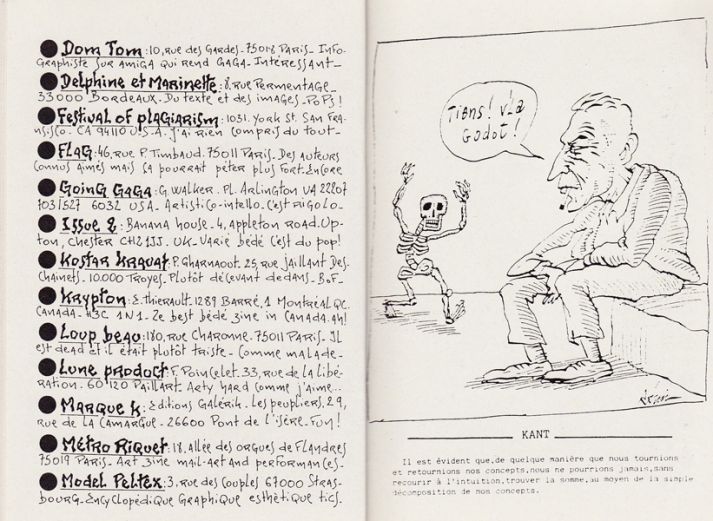 Dom Tom: 10, rue des Gardes - 75018 Paris - Info-
graphiste sur amiga qui rend GAGA - Intéressant -
Delphine et Marinette: 8, rue Permentage -
33000 Bordeaux. Du texte et des images - Pops!
Festival of plagiarism: 1031. York St. San Fra-
nsisco. CA 94110 U-S-A. J'ai rien compris du tout -
Flag: 46, rue P. Timbaud. 75011 Paris. Des auteurs
connus aimés mais ça pourrait péter plus fort. Encore
Going Gaga: G. Walker. Pl. Arlington VA 22207
703/527 6032 USA. Artistico-intello. C'est rigolo -
Issue 8: Banana house - 4, Appleton Road. Up-
ton, Chester CH2 1JJ. UK - Varié bédé c'est du pop!
Kostar Kravat: P. Gharnaout. 25, rue Jaillant Des-
chainets - 10.000 Troyes. Plutôt décevant dedans - Bof -
Krypton: E. Thierault. 1289 Barré, 1 Montréal QC.
Canada - H3C 1N1 - Ze best bédé zine in Canada. ah!
Loup beau: 180, rue Charonne. 75011 Paris. Il
est dead et il était plutôt triste - comme malade -
Lune product: F. Poincelet. 33, rue de la libé-
ration. 60 120 Paillart. Arty hard comme j'aime...
Marque k: Editions Galérik. Les peupliers, 29,
rue de la Camargue - 26600 Pont de l'Isère. Fun!
Métro Riquet: 18, allée des orgues de Flandres
75019 Paris - Art zine mail-art and performances.
Model Peltex: 3, rue des Couples 67000 Stras-
bourg - Encyclopédique graphique esthétique tics.
Tiens! v'la
Godot!
KANT
Il est évident que, de quelque manière que nous tournions
et retournions nos concepts, nous ne pourrions jamais, sans
recourir à l'intuition, trouver la somme, au moyen de la simple
décomposition de nos concepts.